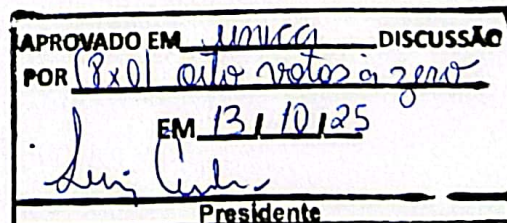 APROVADO EM única DISCUSSÃO
POR (8x0) oito votos à zero
EM 13 / 10 / 25
Presidente